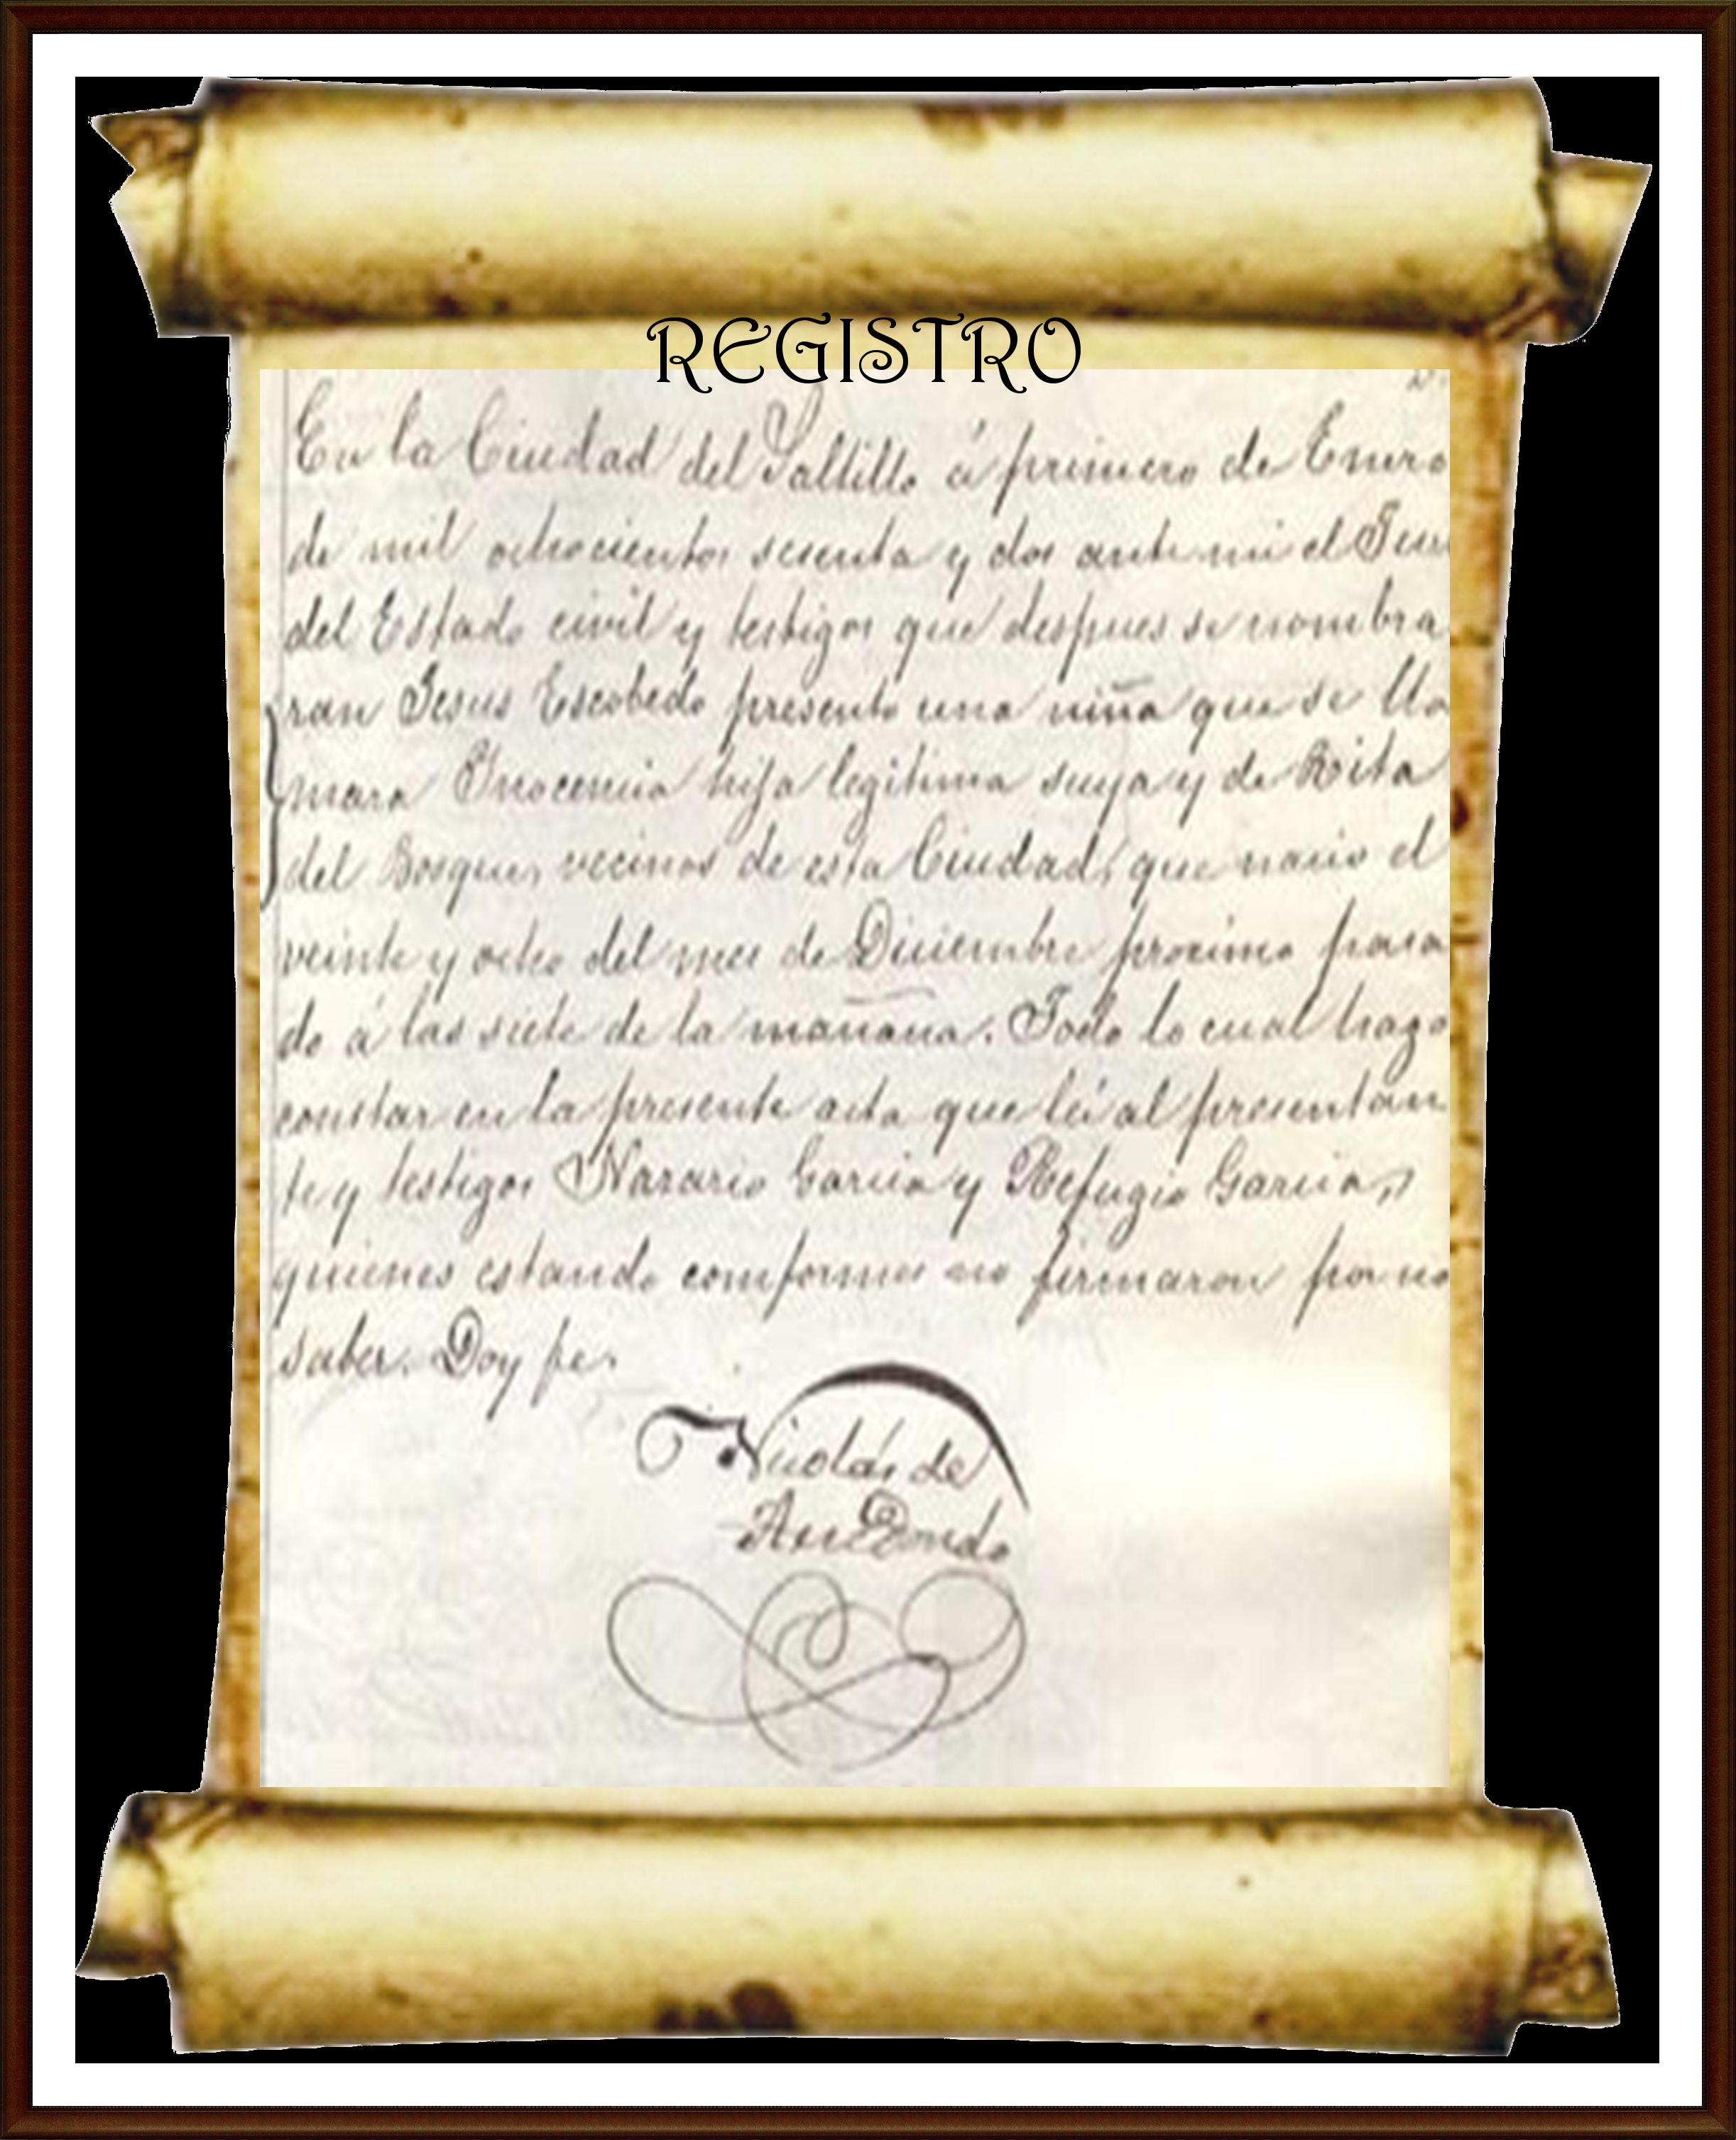 REGISTRO
En la Ciudad del Saltillo á primero de Enero
de mil ochocientos sesenta y dos ante mi el Juez
del Estado civil y testigos que despues se nombra
ran Jesus Escobedo presento una niña que se lla
mara Inocencia hija legitima suya y de Rita
del Bosque, vecinos de esta Ciudad, que nacio el
veinte y ocho del mes de Diciembre procimo pasa
do á las siete de la mañana. Todo lo cual hago
constar en la presente acta que leí al presentan
te y testigos Nazario Garcia y Refugio Garcia,
quienes estando conformes no firmaron por no
saber. Doy fe.
Nicolás de
Arredondo